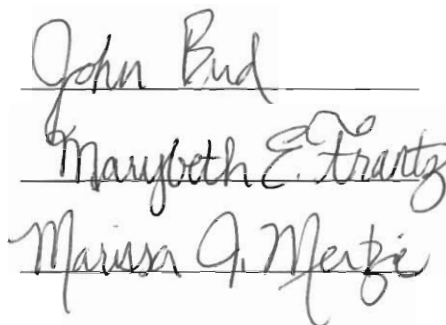 John Bud
Marybeth E. Frantz
Marissa J. Mertzie